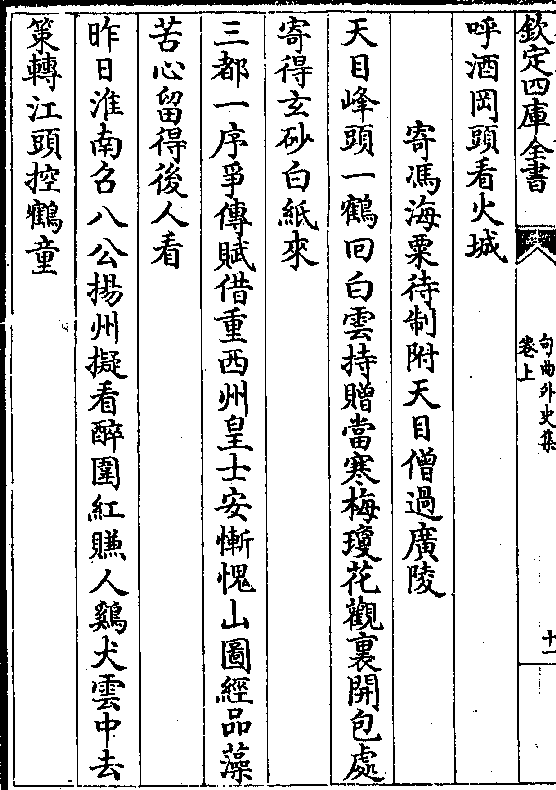 欽定四庫全書
句曲外史集
卷上
十一
呼酒岡頭看火城
寄馮海粟待制附天目僧過廣陵
天目峰頭一鶴回白雲持贈當寒梅瓊花觀裏開包處
寄得玄砂白紙來
三都一序爭傳賦借重西州皇士安慚愧山圖經品藻
苦心留得後人看
昨日淮南名八公揚州擬看醉圍紅賺人鷄犬雲中去
策轉江頭控鶴童